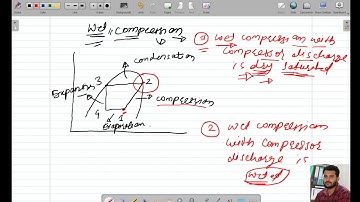 Wet compression
condensation
3
2
Expansion
compression
4
1
Evaporation
① wet compression with
compressor discharge
is dry saturated
② wet compression
with compressor
discharge is